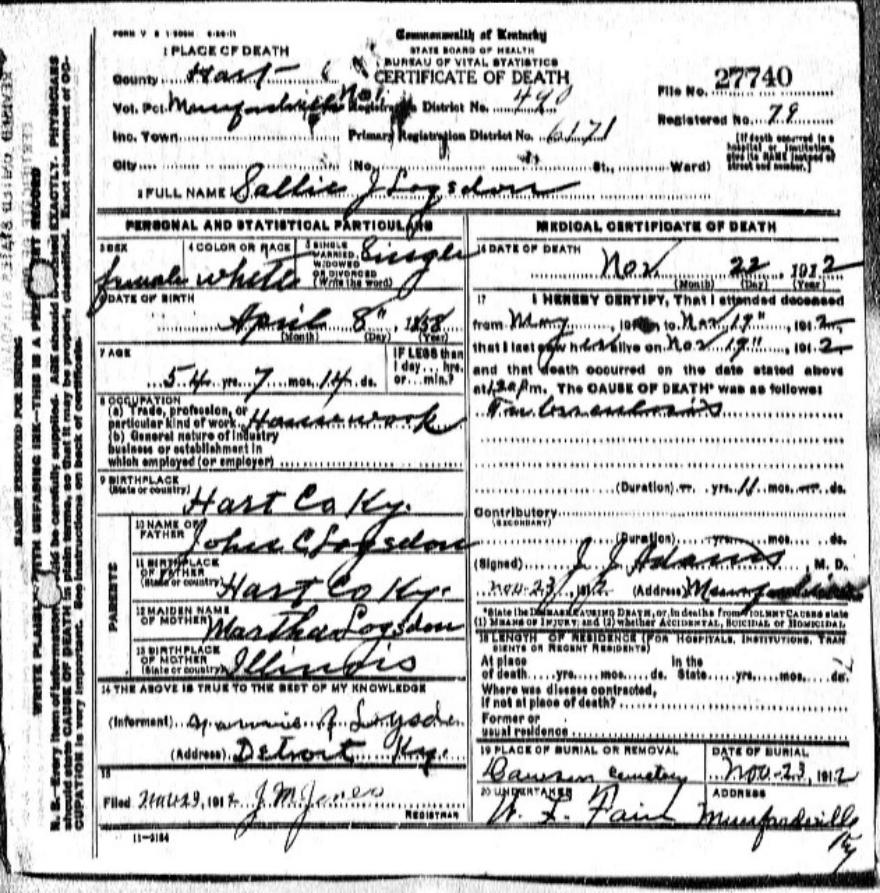 FORM V S 1-500M 6-20-11
Commonwealth of Kentucky
STATE BOARD OF HEALTH
BUREAU OF VITAL STATISTICS
CERTIFICATE OF DEATH
1 PLACE OF DEATH
County Hart
Vot. Pct. Munfordville No 1. Registration District No. 490
Inc. Town Primary Registration District No. 6171
City (No. St., Ward)
File No. 27740
Registered No. 79
[If death occurred in a hospital or institution, give its NAME instead of street and number.]
2 FULL NAME Sallie J Logsdon
PERSONAL AND STATISTICAL PARTICULARS
3 SEX female
4 COLOR OR RACE white
5 SINGLE MARRIED, WIDOWED OR DIVORCED (Write the word) Single
6 DATE OF BIRTH
April 8" 1858
(Month) (Day) (Year)
7 AGE
54 yrs. 7 mos. 14 ds.
IF LESS than 1 day... hrs. or... min.?
8 OCCUPATION
(a) Trade, profession, or particular kind of work Housework
(b) General nature of industry
business or establishment in
which employed (or employer)
9 BIRTHPLACE
(State or country) Hart Co Ky.
PARENTS
10 NAME OF FATHER John C Logsdon
11 BIRTHPLACE OF FATHER (State or country) Hart Co Ky.
12 MAIDEN NAME OF MOTHER Martha Logsdon
13 BIRTHPLACE OF MOTHER (State or country) Illinois
14 THE ABOVE IS TRUE TO THE BEST OF MY KNOWLEDGE
(Informant)
(Address) Detroit Ky.
15
Filed 1912 J. M. Jones
REGISTRAR
11-3184
MEDICAL CERTIFICATE OF DEATH
16 DATE OF DEATH
Nov. 22 1912
(Month) (Day) (Year)
17 I HEREBY CERTIFY, That I attended deceased
from May , 191 to Nov 19" , 1912
that I last saw her alive on Nov 19" , 1912
and that death occurred on the date stated above
at 1.20 Pm. The CAUSE OF DEATH* was as follows:
Tuberculosis
(Duration) yrs. 11 mos. ds.
Contributory
(SECONDARY)
(Duration) yrs. mos. ds.
(Signed) J. J. Adams , M. D.
Nov-23, 1912 (Address) Munfordville
*State the DISEASE CAUSING DEATH, or, in deaths from VIOLENT CAUSES state
(1) MEANS OF INJURY; and (2) whether ACCIDENTAL, SUICIDAL or HOMICIDAL.
18 LENGTH OF RESIDENCE (FOR HOSPITALS, INSTITUTIONS, TRANSIENTS OR RECENT RESIDENTS)
At place of death yrs. mos. ds. In the State yrs. mos. ds.
Where was disease contracted,
if not at place of death?
Former or
usual residence
19 PLACE OF BURIAL OR REMOVAL
cemetery
DATE OF BURIAL
Nov-23, 1912
20 UNDERTAKER
W. L. Fair
ADDRESS
Munfordville Ky
MARGIN RESERVED FOR BINDING
WRITE PLAINLY WITH UNFADING INK—THIS IS A PERMANENT RECORD
N. B.—Every item of information should be carefully supplied. AGE should be stated EXACTLY. PHYSICIANS
should state CAUSE OF DEATH in plain terms, so that it may be properly classified. Exact statement of OC-
CUPATION is very important. See instructions on back of certificate.